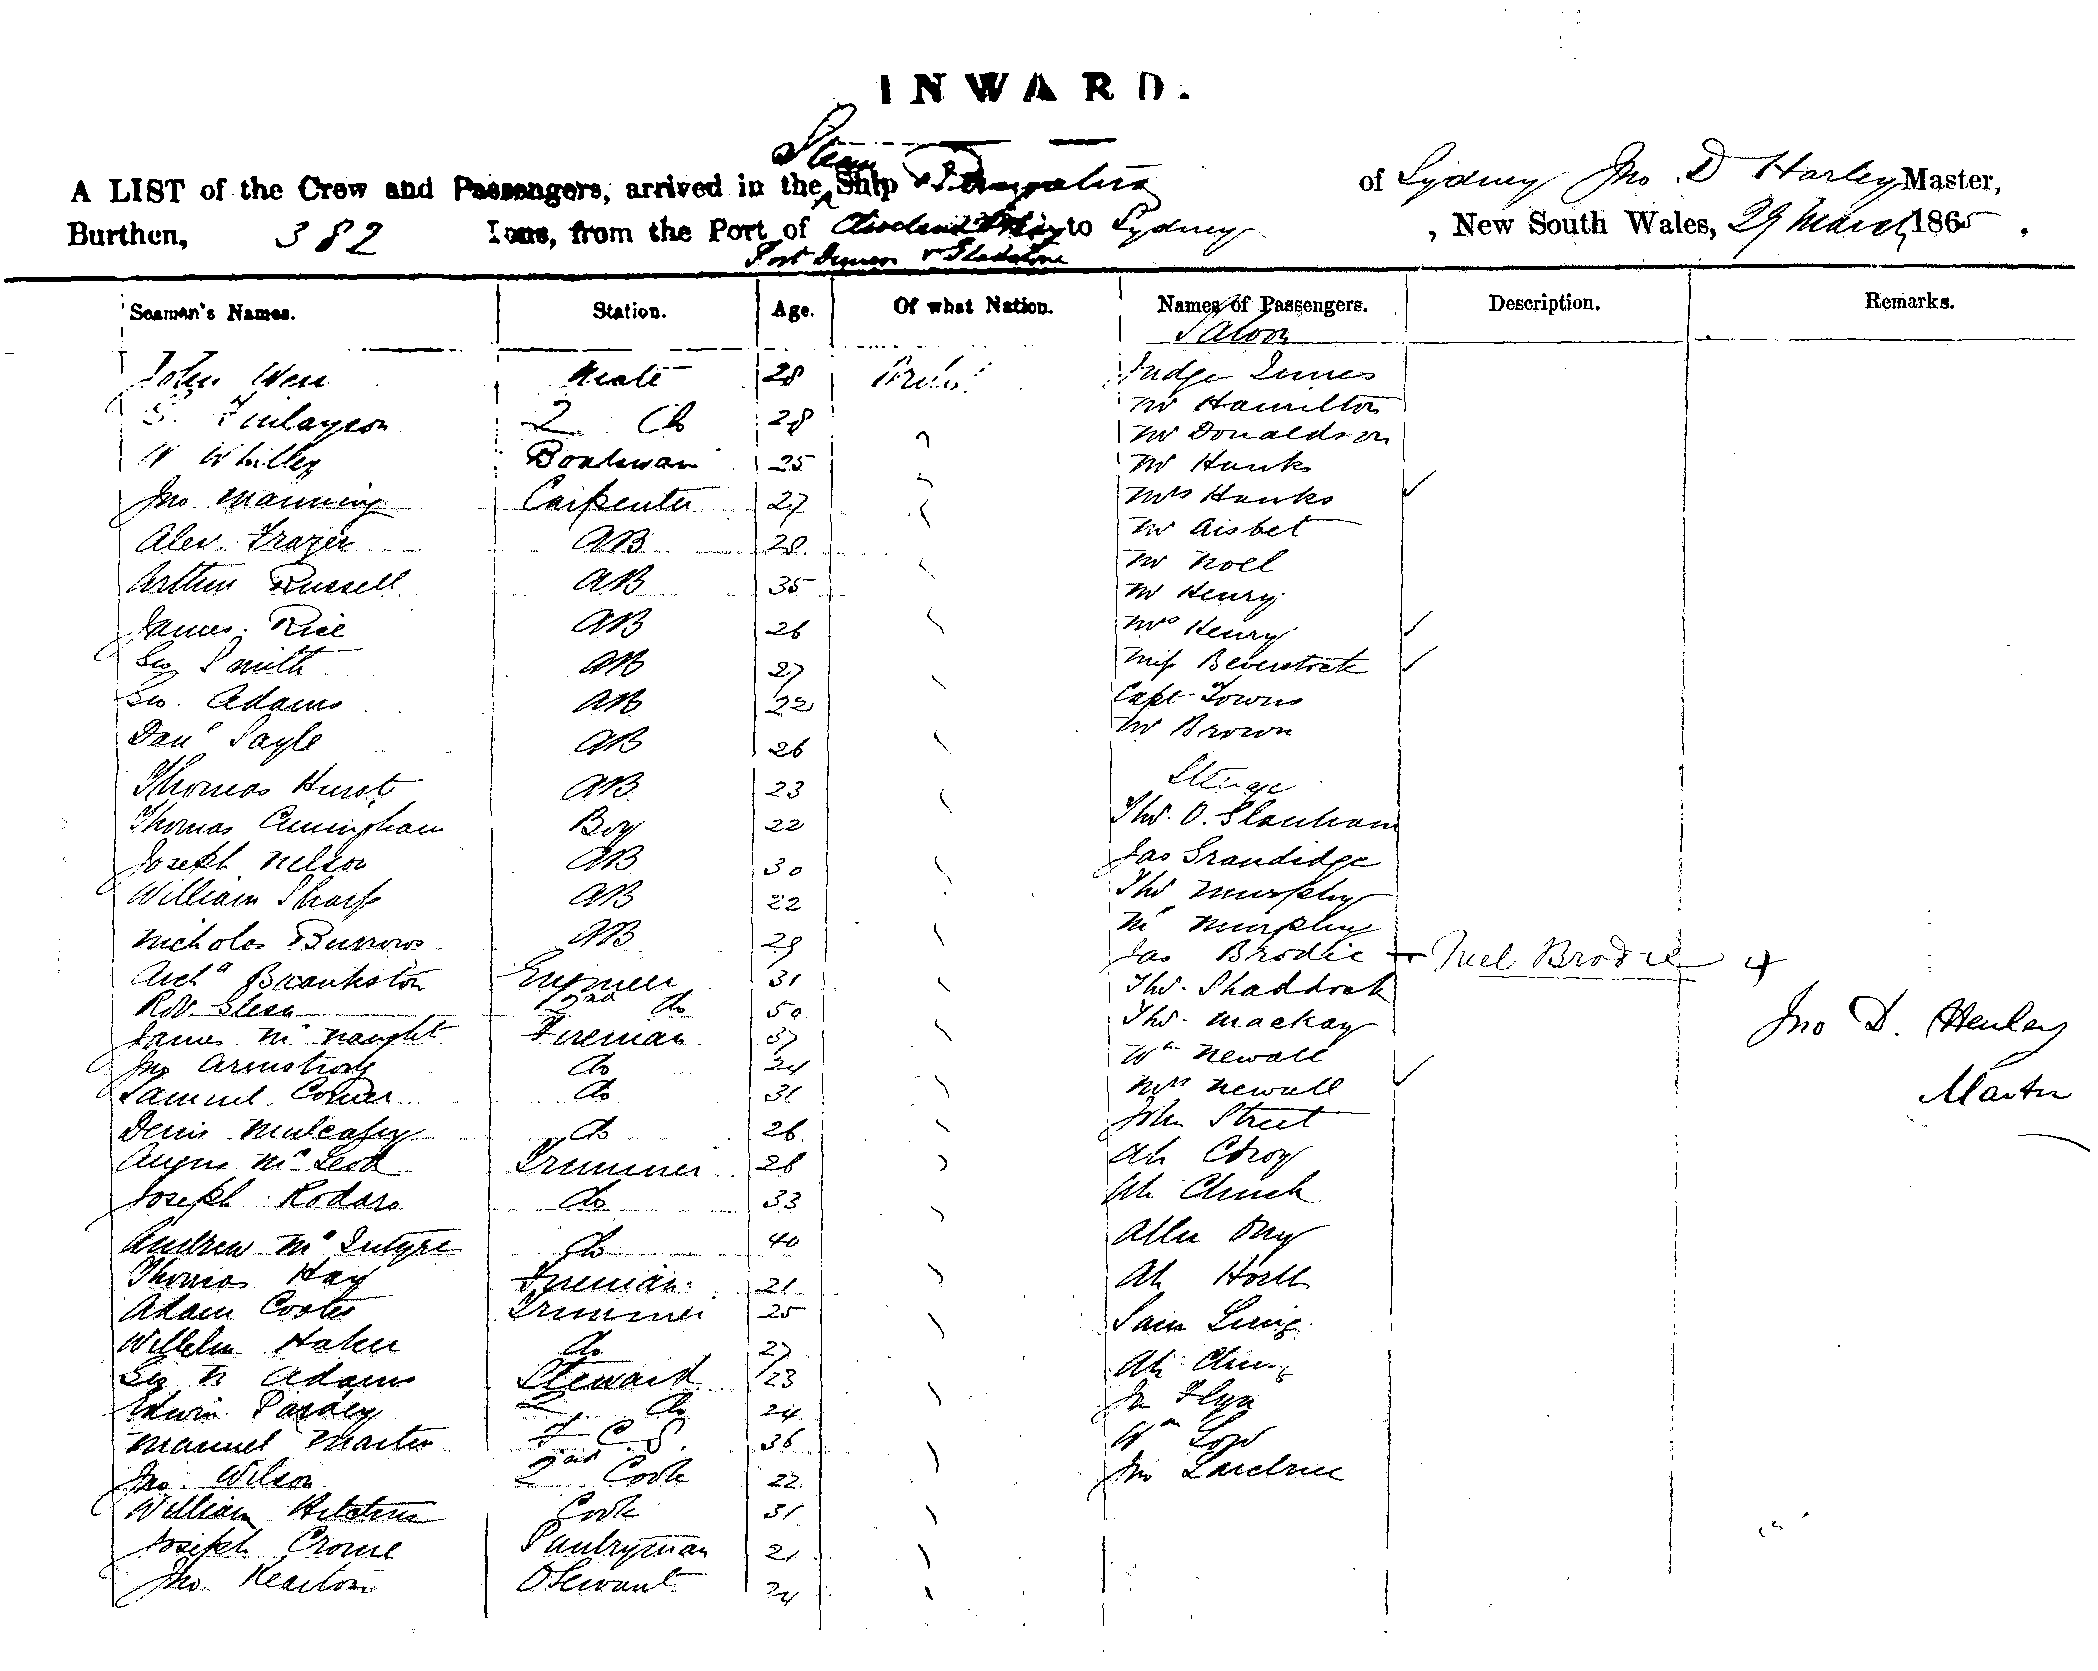 INWARD.
Steam
A LIST of the Crew and Passengers, arrived in the Ship of Sydney Jno D Harley Master,
Burthen, 382 Tons, from the Port of Cleveland Bay to Sydney, New South Wales, 29 March 1865.
Port Denison & Gladstone
Seaman's Names. Station. Age. Of what Nation. Names of Passengers. Description. Remarks.
Saloon
John Weir Mate 28 Judge Innes
Mr Hamilton
S. Finlayson 2 do 28
Mr Donaldson
W Whilley Boatman 25 Mr Hanks
Jno Manning Carpenter 27 Mrs Hanks
Mr Aisbet
Alex Frazer AB 28
Mr Noel
Arthur Russell AB 35 Mr Henry
James Rice AB 26 Mrs Henry
Geo Smith AB 27 Miss Beverstock
Geo. Adams AB 22 Capt Towns
Mr Brown
Danl Sayle AB 26
Thomas Hurst AB 23
Thomas Cuningham Boy 22 Thos. O.
Joseph Nelson AB 30 Jas Grandidge
William Sharp AB 22 Thos Murphy
Mr Murphy
Nicholas Burrows AB 29 Jas Brodie Brodie
Archd Brankston Engineer 31 Thos. Shaddock
Robt 2nd do 50
Thos. Mackay
James McNaught Fireman 37
Wm Newall
Jno Armstrong do 24
Samuel do 31 Mrs Newall
John Street
Denis Mulcahy do 26
Angus McLeod Trimmer 26 Ah
Joseph Rodars do 33 Ah
Andrew McIntyre do 40
Thomas Hay Fireman 21 Ah
Adam Coates Trimmer 25 Sam
Wilhelm Hahn do 27
Geo N Adams Steward 23 Ah
Edwin Pardey 2 do 24
Manuel Martin F C S. 36 Wm
Jno. Wilson 2nd Cook 22 Jno
William Cook 31
Joseph Crowe Pantryman 21
Jno. 24
Jno D. Henley
Master